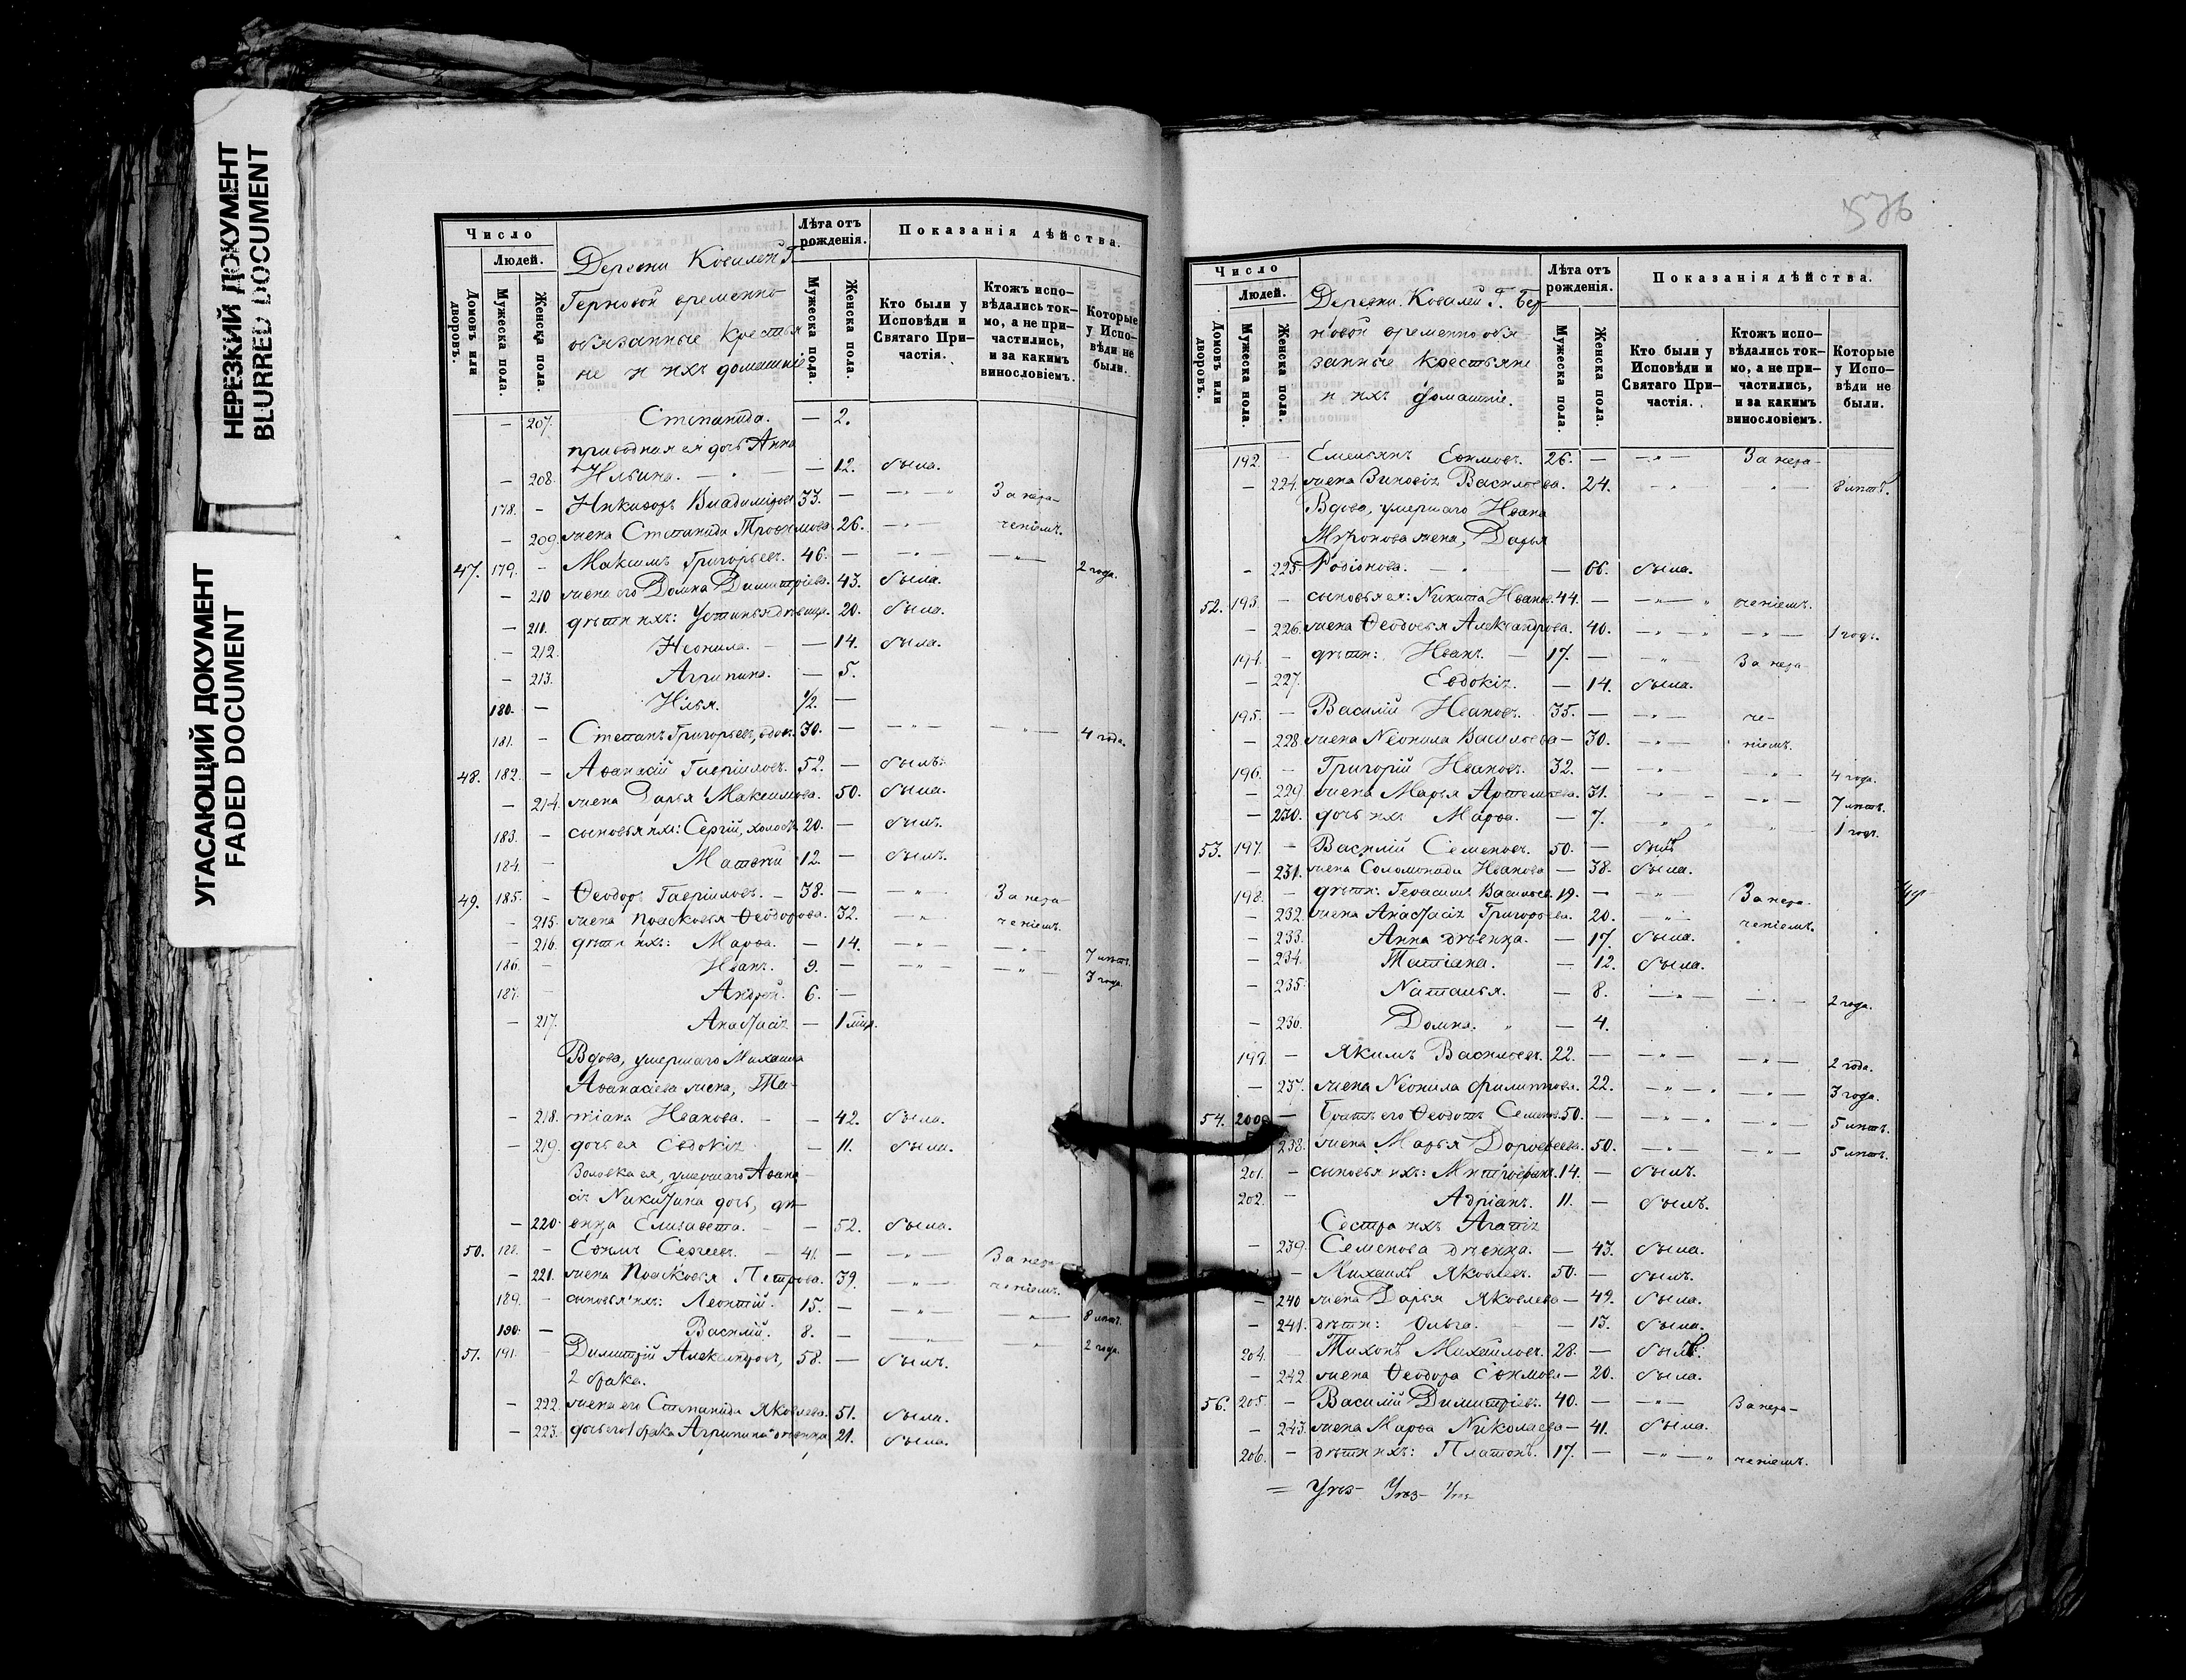 НЕРЕЗКИЙ ДОКУМЕНТ
BLURRED DOCUMENT
УГАСАЮЩИЙ ДОКУМЕНТ
FADED DOCUMENT
Число
Людей.
Домовъ или дворовъ.
Мужеска пола.
Женска пола.
Лѣта отъ рожденія.
Мужеска пола.
Женска пола.
Показанія дѣйства.
Кто были у Исповѣди и Святаго Причастія.
Ктожъ исповѣдались токмо, а не причастились, и за какимъ винословіемъ.
Которые у Исповѣди не были.
Деревни
временно
обязанные крестья
не и ихъ домашніе
— 207. Степанида. — 2.
приводная ея дочь Анна
— 208. Ильина. — — 12. была.
178. — Никифоръ 33. — — „ — За нера-
— 209. жена Степанида Трофимова. 26. — „ — ченіемъ.
47. 179. — Максимъ Григорьевъ. 46. — — „ — — „ — 2 года.
— 210 жена его Домна Димитріева. 43. была.
— 211. дѣти ихъ: Устинья дѣвица. 20. была.
— 212. Неонила. — — 14. была.
— 213. Агрипина. — 5.
180. — Илья. 1/2. —
181. — Стефанъ Григорьевъ, вдовъ. 30. — — „ — „ — 4 года.
48. 182. — Аѳанасій Гавріиловъ. 52. — былъ.
— 214. жена Дарья Максимова. 50. была.
183. — сыновья ихъ: Сергій, холостъ 20. — былъ.
184. — Матѳей 12. — былъ.
49. 185. — Ѳеодоръ Гавріиловъ. — 38. — — „ — За нера-
— 215. жена Прасковья Ѳеодорова. 32. — „ — ченіемъ.
— 216. дѣти ихъ: Марѳа. — 14. — „ — — „ — 7 лѣтъ.
186. — Иванъ. 9. — — „ — — „ — 3 года.
187. — Андрей. 6. —
— 217. Анастасія — 1
Вдова, умершаго Михаила
Аѳанасіева жена, Та-
— 218. тіана Иванова. — — 42. была.
— 219. дочь ея Евдокія — 11. была.
Золовка ея, умершаго Аѳана
сія Никитина дочь, дѣ-
— 220. вица Елисавета. — — 52. была.
50. 188. — Еѳимъ Сергеевъ. — 41. — — „ — За нера-
— 221. жена Прасковья Петрова. 39. — „ — ченіемъ.
189. — сыновья ихъ: Леонтій. 15. — — „ — „ — 8 лѣтъ.
190. — Василій. 8. — — „ — „ — 2 года.
51. 191. — Димитрій Александровъ, 58. — былъ.
2 брака.
— 222. жена его Степанида Яковлева. 51. была.
— 223. дочь его 1 брака Агрипина дѣвица 21. была.
576
Число
Людей.
Домовъ или дворовъ.
Мужеска пола.
Женска пола.
Лѣта отъ рожденія.
Мужеска пола.
Женска пола.
Показанія дѣйства.
Кто были у Исповѣди и Святаго Причастія.
Ктожъ исповѣдались токмо, а не причастились, и за какимъ винословіемъ.
Которые у Исповѣди не были.
Деревни
новой временно обя-
занные крестьяне
и ихъ домашніе.
192. — Емельянъ Еѳимовъ. 26. — — „ — За нера-
— 224. жена Зиновія Васильева. 24. — „ — „ 8 лѣтъ.
Вдова, умершаго Ивана
Миронова жена, Дарья
— 225. Родіонова. — — 66. была.
52. 193. — сыновья ея: Никита Иванов. 44. — — „ — „ ченіемъ.
— 226. жена Ѳеодосья Александрова. 40. — „ — „ — „ — 1 годъ.
194. — дѣти: Иванъ. — 17. — — „ — За нера-
— 227. Евдокія. — 14. была.
195. — Василій Ивановъ. 35. — — „ — че-
— 228. жена Неонила Васильева — 30. — „ — ніемъ.
196. — Григорій Ивановъ. 32. — — „ — — „ — 4 года.
— 229. жена Марья Артемьева. 31. — „ — — „ — 7 лѣтъ.
— 230. дочь ихъ Марѳа. — 7. — „ „ — „ — 1 годъ.
53. 197. — Василій Семеновъ. 50. — былъ
— 231. жена Соломонида Иванова — 38. была.
198. — дѣти: Герасимъ Васильев. 19. — — „ — За нера-
— 232. жена Анастасія Григорьева. 20. — „ — ченіемъ.
— 233. Анна дѣвица. — 17. была.
— 234. Татіана. — 12. была.
— 235. Наталья. — 8. — „ — — „ — 2 года.
— 236. Домна. „ — 4.
199. — Якимъ Васильевъ. 22. — — „ — — „ — 2 года.
— 237. жена Неонила Филиппова. 22. — „ — „ — „ — 3 года.
54. 200 — Братъ его Ѳеодотъ Семенов. 50. — — „ — „ — „ — 5 лѣтъ.
238. жена Марья Дороѳеева. 50. — „ — — „ — 5 лѣтъ.
201. — сыновья ихъ: Митрофанъ. 14. — былъ.
202. — Адріанъ. 11. — былъ.
Сестра ихъ Агапія
— 239. Семенова дѣвица. — 43. была.
— Михаилъ Яковлевъ. 50. — былъ.
— 240 жена Дарья Яковлева — 49. была.
— 241. дѣти: Ольга. — 13. была.
204. Тихонъ Михайловъ. 28. — былъ.
— 242 жена Ѳеодора Еѳимова — 20. была.
56. 205. — Василій Димитріевъ. 40. — — „ — За нера-
— 243. жена Марѳа Николаева — 41. была.
206. — дѣти ихъ: Платонъ. 17. — — „ — „ ченіемъ.